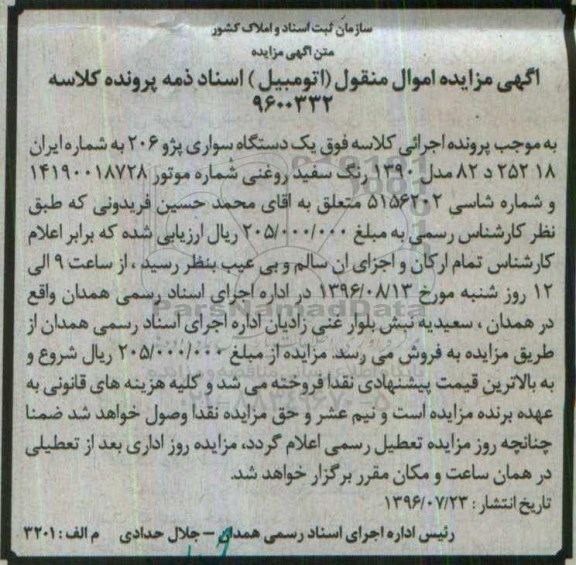 سازمان ثبت اسناد و املاک کشور
متن اگهی مزایده
اگهی مزایده اموال منقول (اتومبیل) اسناد ذمه پرونده کلاسه
۹۶۰۰۳۳۲
به موجب پرونده اجرائی کلاسه فوق یک دستگاه سواری پژو ۲۰۶ به شماره ایران
۱۸ ۲۵۲ د ۸۲ مدل ۱۳۹۰ رنگ سفید روغنی شماره موتور ۱۴۱۹۰۰۱۸۷۲۸
و شماره شاسی ۵۱۵۶۲۰۲ متعلق به اقای محمد حسین فریدونی که طبق
نظر کارشناس رسمی به مبلغ ۲۰۵/۰۰۰/۰۰۰ ریال ارزیابی شده که برابر اعلام
کارشناس تمام ارکان و اجزای ان سالم و بی عیب بنظر رسید ، از ساعت ۹ الی
۱۲ روز شنبه مورخ ۱۳۹۶/۰۸/۱۳ در اداره اجرای اسناد رسمی همدان واقع
در همدان ، سعیدیه نبش بلوار غنی زادیان اداره اجرای اسناد رسمی همدان از
طریق مزایده به فروش می رسد. مزایده از مبلغ ۲۰۵/۰۰۰/۰۰۰ ریال شروع و
به بالاترین قیمت پیشنهادی نقدا فروخته می شد و کلیه هزینه های قانونی به
عهده برنده مزایده است و نیم عشر و حق مزایده نقدا وصول خواهد شد ضمنا
چنانچه روز مزایده تعطیل رسمی اعلام گردد، مزایده روز اداری بعد از تعطیلی
در همان ساعت و مکان مقرر برگزار خواهد شد.
تاریخ انتشار : ۱۳۹۶/۰۷/۲۳
رئیس اداره اجرای اسناد رسمی همدان – جلال حدادی م الف : ۳۲۰۱
ParsNamadData